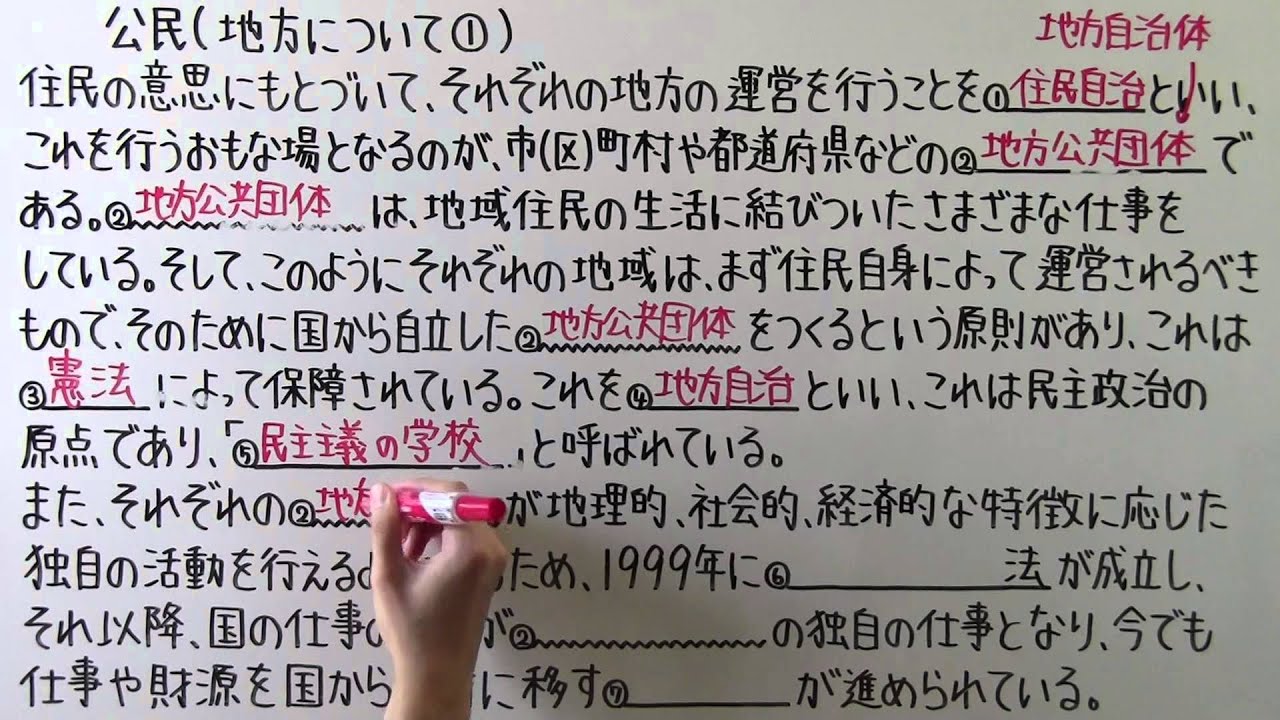 公民(地方について①)
地方自治体
住民の意思にもとづいて、それぞれの地方の運営を行うことを①住民自治といい、
これを行うおもな場となるのが、市(区)町村や都道府県などの②地方公共団体で
ある。②地方公共団体は、地域住民の生活に結びついたさまざまな仕事を
している。そして、このようにそれぞれの地域は、まず住民自身によって運営されるべき
もので、そのために国から自立した②地方公共団体をつくるという原則があり、これは
③憲法によって保障されている。これを④地方自治といい、これは民主政治の
原点であり、「⑤民主主義の学校」と呼ばれている。
また、それぞれの②地方が地理的、社会的、経済的な特徴に応じた
独自の活動を行えるため、1999年に⑥法が成立し、
それ以降、国の仕事が②の独自の仕事となり、今でも
仕事や財源を国からに移す⑦が進められている。